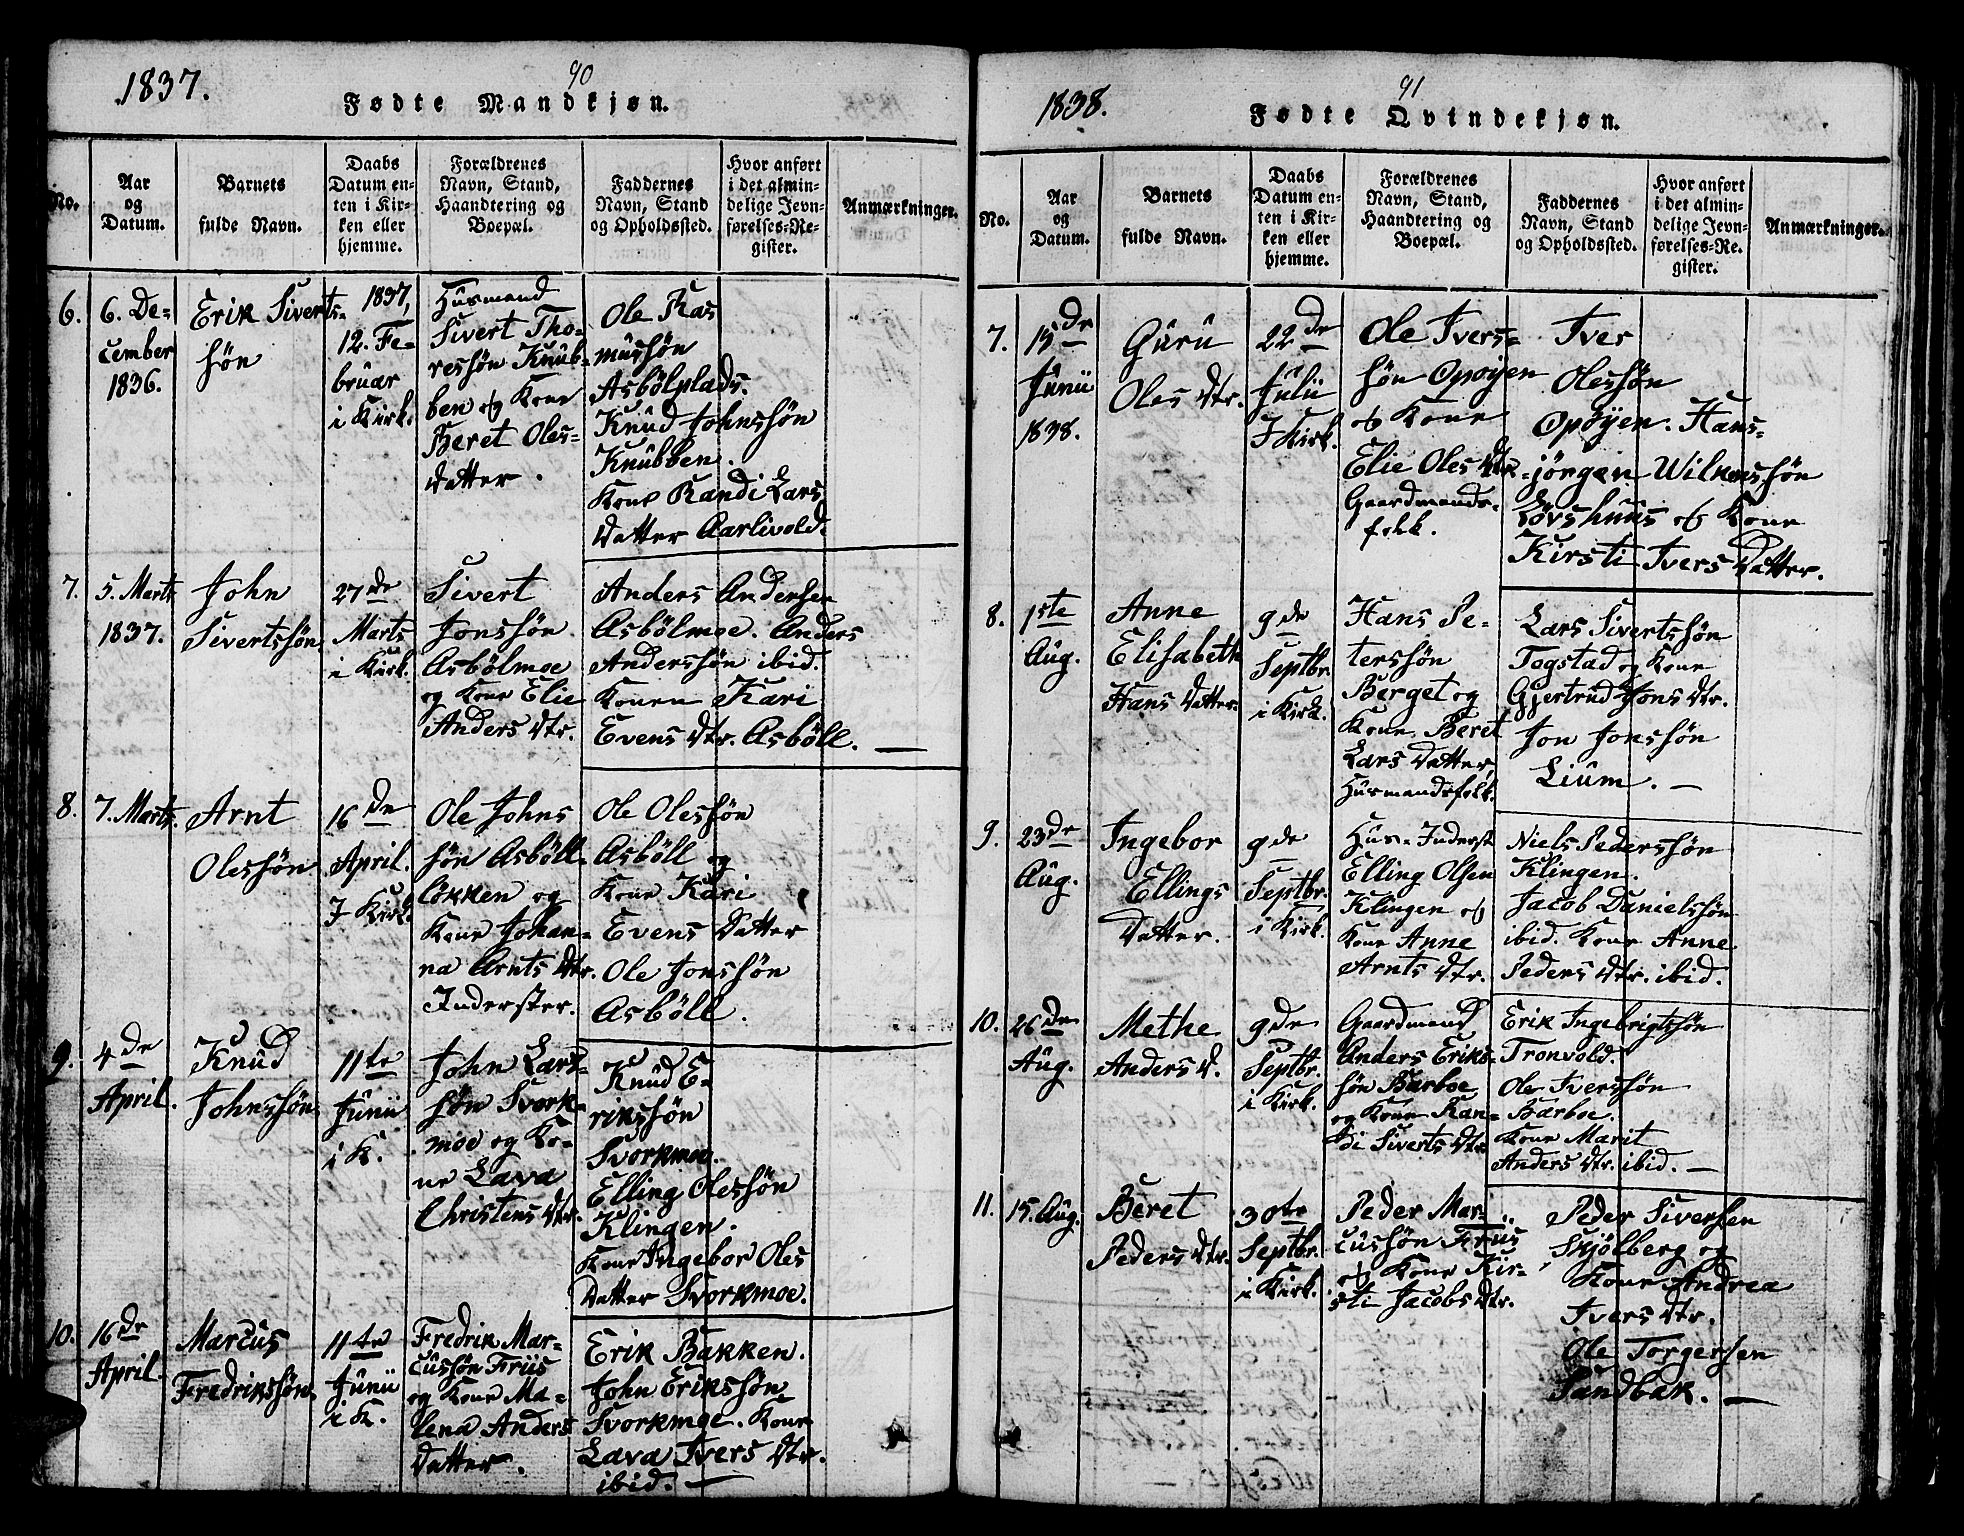 1837.
90
Fødte Mandkjøn.
No.
Aar
og
Datum.
Barnets
fulde Navn.
Daabs
Datum en-
ten i Kir-
ken eller
hjemme.
Forældrenes
Navn, Stand,
Haandtering og
Boepæl.
Faddernes
Navn, Stand
og Opholdssted.
Hvor anført
i det almin-
delige Jevn-
førelses-Re-
gister.
Anmærkninger.
6.
6. De-
cember
1836.
Erik Siverts-
søn
1837,
12. Fe-
bruar
i Kirk.
Husmand
Sivert Tho-
ressøn Knub-
ben og Kone
Beret Oles-
datter.
Ole Ras
mussøn
Asbölplads.
Knud Johnssøn
Knubben.
Kone Randi Lars
Datter Aarlivold.
7.
5. Marts
1837.
John
Sivertssøn
27de
Marts
i Kirk.
Sivert
Jonssøn
Asbölmoe
og Kone Elie
Anders Dtr.
Anders Andersen
Asbölmoe. Anders
Anderssøn ibid.
Konen Kari
Evens Dtr. Asböll. —
8.
7. Marts.
Arnt
Olessøn
16de
April.
I Kirk.
Ole Johns
søn Asböll-
løkken og
Kone Johan-
na Arnts Dtr.
Inderster.
Ole Olessøn
Asböll og
Kone Kari
Evens Datter
Ole Jonssøn
Asböll.
9.
4de
April.
Knud
Johnssøn
11te
Junii
i K.
John Lars-
søn Svork-
moe og Ko-
ne Lava
Christens Dtr.
Knud E-
rikssøn
Svorkmoe.
Elling Olessøn
Klingen.
Kone Ingebor Oles
Datter Svorkmoe.
10.
16de
April.
Marcus
Fredrikssøn
11te
Junii
i K.
Fredrik Mar-
cussøn Friis
og Kone Ma-
lena Anders
Datter.
Erik Bakken.
John Erikssøn
Svorkmoe. Kone
Lava Ivers Dtr.
ibid. —
1838.
91
Fødte Qvindekjøn.
No.
Aar
og
Datum.
Barnets
fulde Navn.
Daabs
Datum en-
ten i Kir-
ken eller
hjemme.
Forældrenes
Navn, Stand,
Haandtering og
Boepæl.
Faddernes
Navn, Stand
og Opholdssted.
Hvor anført
i det almin-
delige Jevn-
førelses-Re-
gister.
Anmærkninger.
7.
15de
Junii
1838.
Guru
Oles Dtr.
22de
Julii
I Kirk.
Ole Ivers-
søn Opøyen
og Kone
Elie Oles Dtr.
Gaardmands-
folk.
Iver
Olessøn
Opøyen. Hans-
jørgen Wilkenssøn
Løvshuus og Kone
Kirsti Ivers Datter.
8.
1ste
Aug.
Anne
Elisabeth
Hans Datter
9de
Septbr.
i Kirk.
Hans Pe-
terssøn
Berget og
Kone Beret
Lars Datter,
Husmandsfolk.
Lars Sivertssøn
Togstad og Kone
Gjertrud Jons Dtr.
Jon Jonssøn
Lium. —
9.
23de
Aug.
Ingebor
Ellings
Datter.
9de
Septbr.
i Kirk.
Hus-Inderst
Elling Olsen
Klingen og
Kone Anne
Arnts Dtr.
Niels Pederssøn
Klingen.
Jacob Danielssøn
ibid. Kone Anne
Peders Dtr. ibid.
10.
26de
Aug.
Methe
Anders D.
9de
Septbr.
i Kirk.
Gaardmand
Anders Eriks-
søn Barboe
og Kone Ran-
di Siverts Dtr.
Erik Ingebrigtssøn
Tronvold.
Ole Iverssøn
Barboe.
Kone Marit
Anders Dtr. ibid. —
11.
15. Aug.
Beret
Peders Dtr.
30te
Septbr.
i Kirk.
Peder Mar-
cussøn Friis
og Kone Kir-
sti Jacobs Dtr.
Peder Siversen
Skjølberg og
Kone Andrea
Ivers Dtr.
Ole Torgersen
Sandbak. —